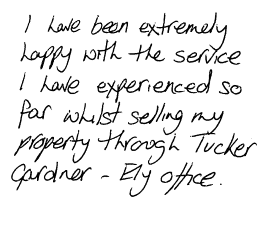 I have been extremely
happy with the service
I have experienced so
far whilst selling my
property through Tucker
Gardner - Ely office.